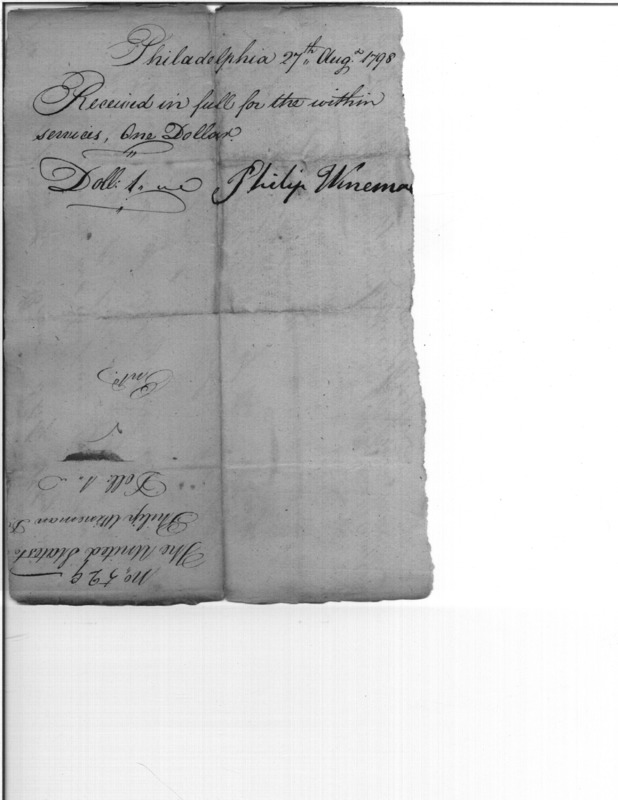 Philadelphia 27th Augt 1798
Received in full for the within
services, One Dollar.
Doll: 1. Philip Winema
No. 529
The United States
Philip Wineman Dr
Doll: 1.
Entd